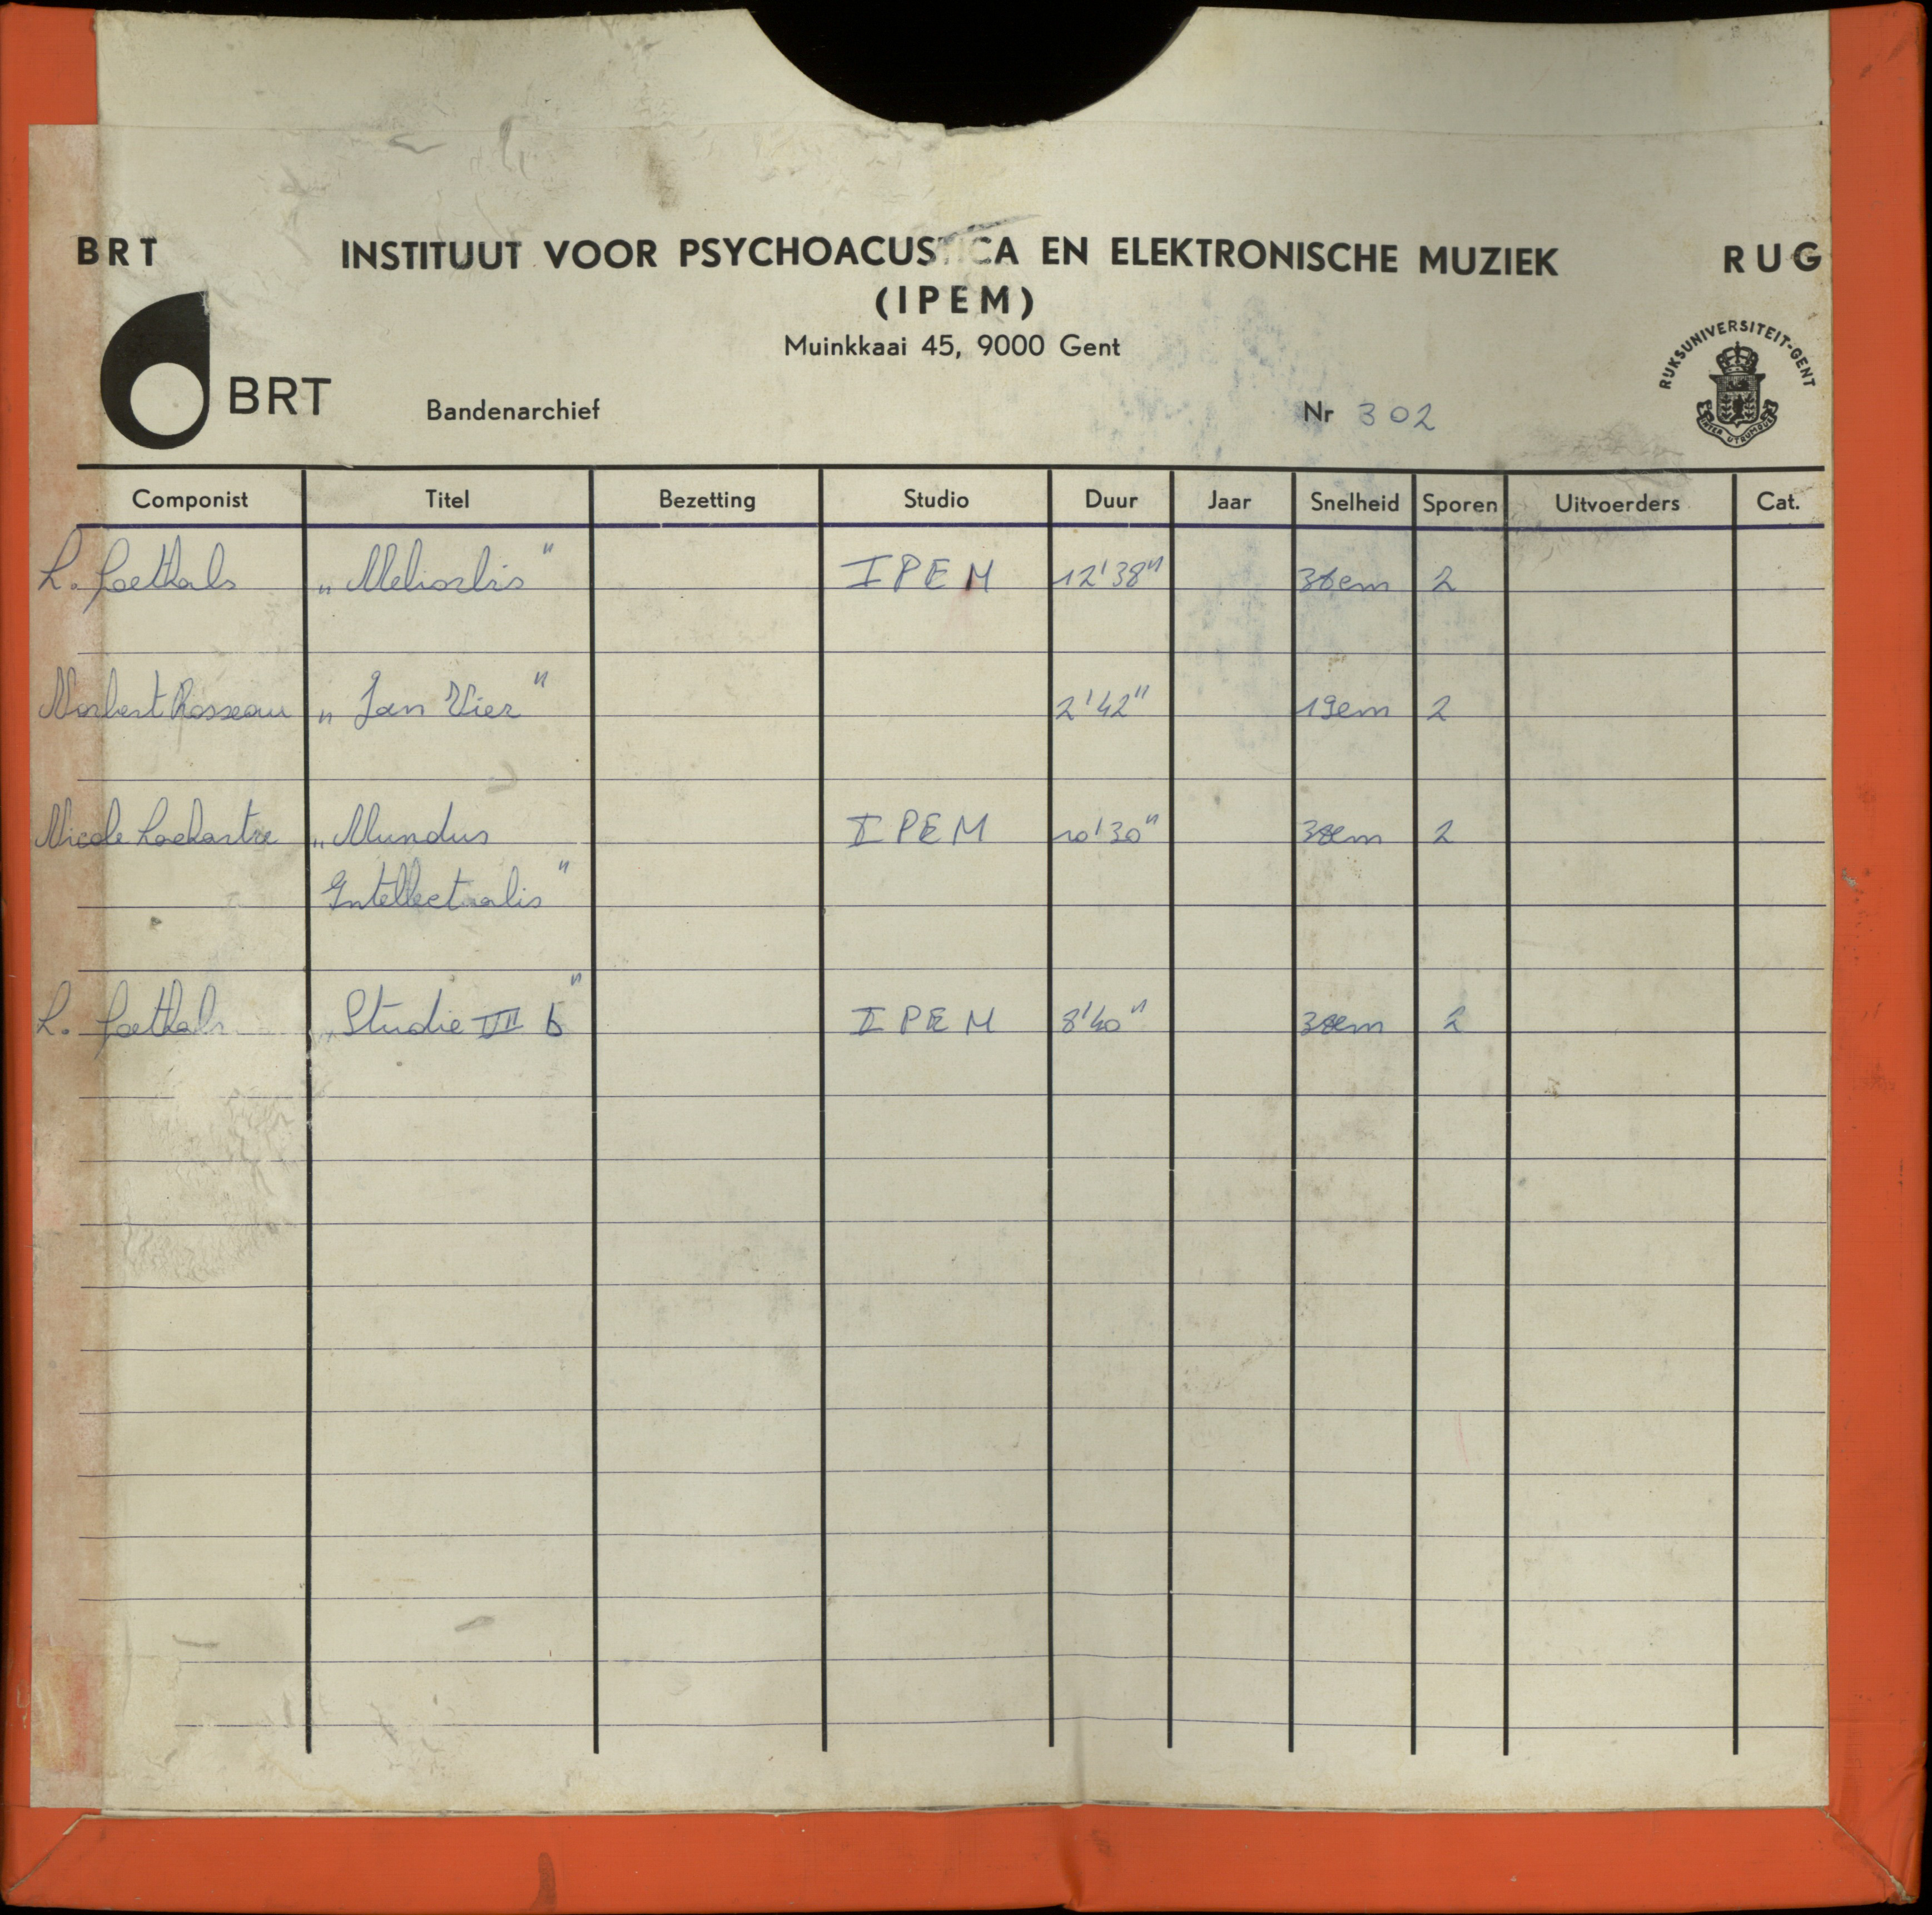 BRT INSTITUUT VOOR PSYCHOACUSTICA EN ELEKTRONISCHE MUZIEK RUG
(IPEM)
Muinkkaai 45, 9000 Gent
RIJKSUNIVERSITEIT-GENT
INTER UTRUMQUE
BRT Bandenarchief Nr 302
Componist Titel Bezetting Studio Duur Jaar Snelheid Sporen Uitvoerders Cat.
L. Goethals „Meliorbis" IPEM 12'38" 38cm 2
Norbert Rosseau „Jan Vier" 2'42" 19cm 2
Nicole Lachartre „Mundus IPEM 10'30" 38cm 2
Intellectualis"
L. Goethals „Studie VII b" IPEM 8'40" 38cm 2